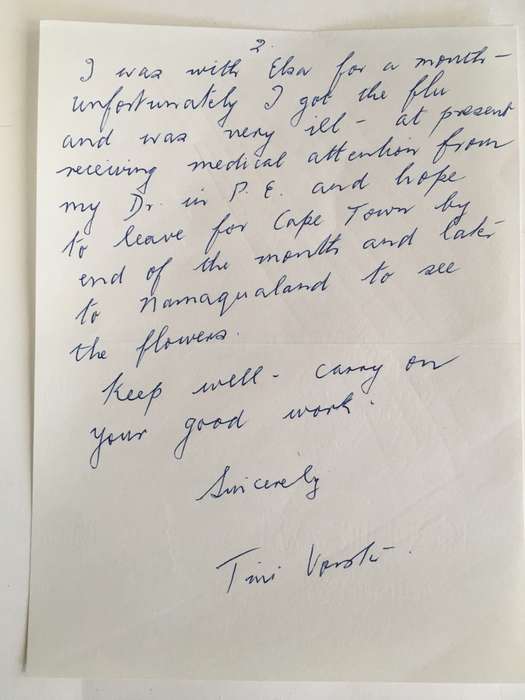 2.
I was with Elsa for a month -
unfortunately I got the flu
and was very ill - at present
receiving medical attention from
my Dr. in P. E. and hope
to leave for Cape Town by
end of the month and later
to Namaqualand to see
the flowers.
Keep well - carry on
your good work.
Sincerely
Tini Vorster.